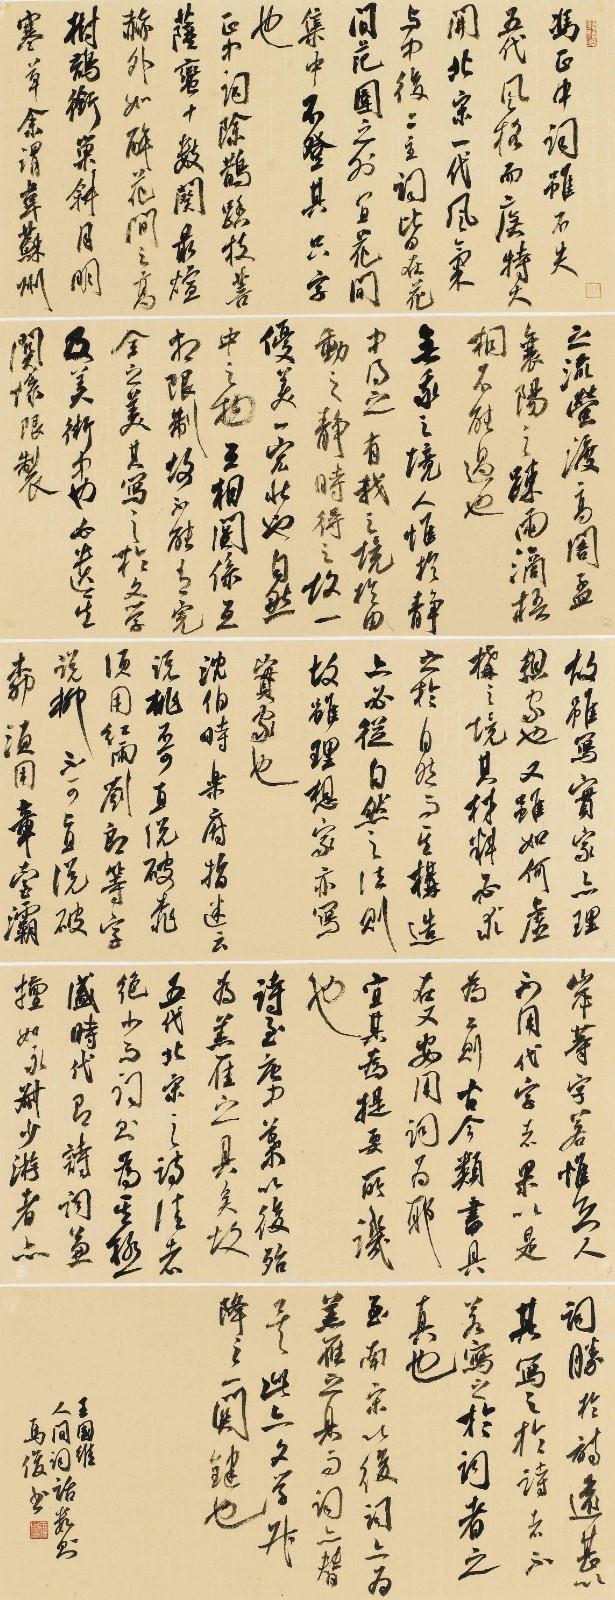 馮正中詞雖不失
五代風格而特大
開北宋一代風氣
与中後二主詞皆在花
間範圍之外宜花間
集中不登其只字
也
正中詞除鵲踏枝菩
薩蠻十數闋最煊
赫外如醉花間之高
樹鵲銜巢斜月明
寒草余謂韋蘇州
之流螢渡高閣孟
襄陽之疎雨滴梧
桐不能過也
無我之境人惟於静
中得之有我之境於由
動之静時得之故一
優美一宏壯也自然
中之物互相関係互
相限制故不能有完
全之美其寫之於文學
及美術中也必遺其
関係限製
故雖寫實家亦理
想家也又雖如何虛
構之境其材料必求
之於自然而其構造
上必從自然之法則
故雖理想家亦寫
實家也
沈伯時樂府指迷云
說桃不可直說破桃
須用紅雨劉郎等字
說柳不可直說破
柳須用章臺灞
岸等字若惟恐人
不用代字者果以是
為工則古今類書具
在又安用詞為耶
宜其為提要所譏
也
詩至唐中葉以後殆
為羔雁之具矣故
五代北宋之詩佳者
絕少而詞則為其極
盛時代即詩詞兼
擅如永叔少游者亦
詞勝於詩遠甚以
其寫之於詩者不
若寫之於詞者之
真也
至南宋以後詞亦為
羔雁之具而詞亦替
矣此亦文學升
降之一関鍵也
王國維
人间詞話數則
馬俊書